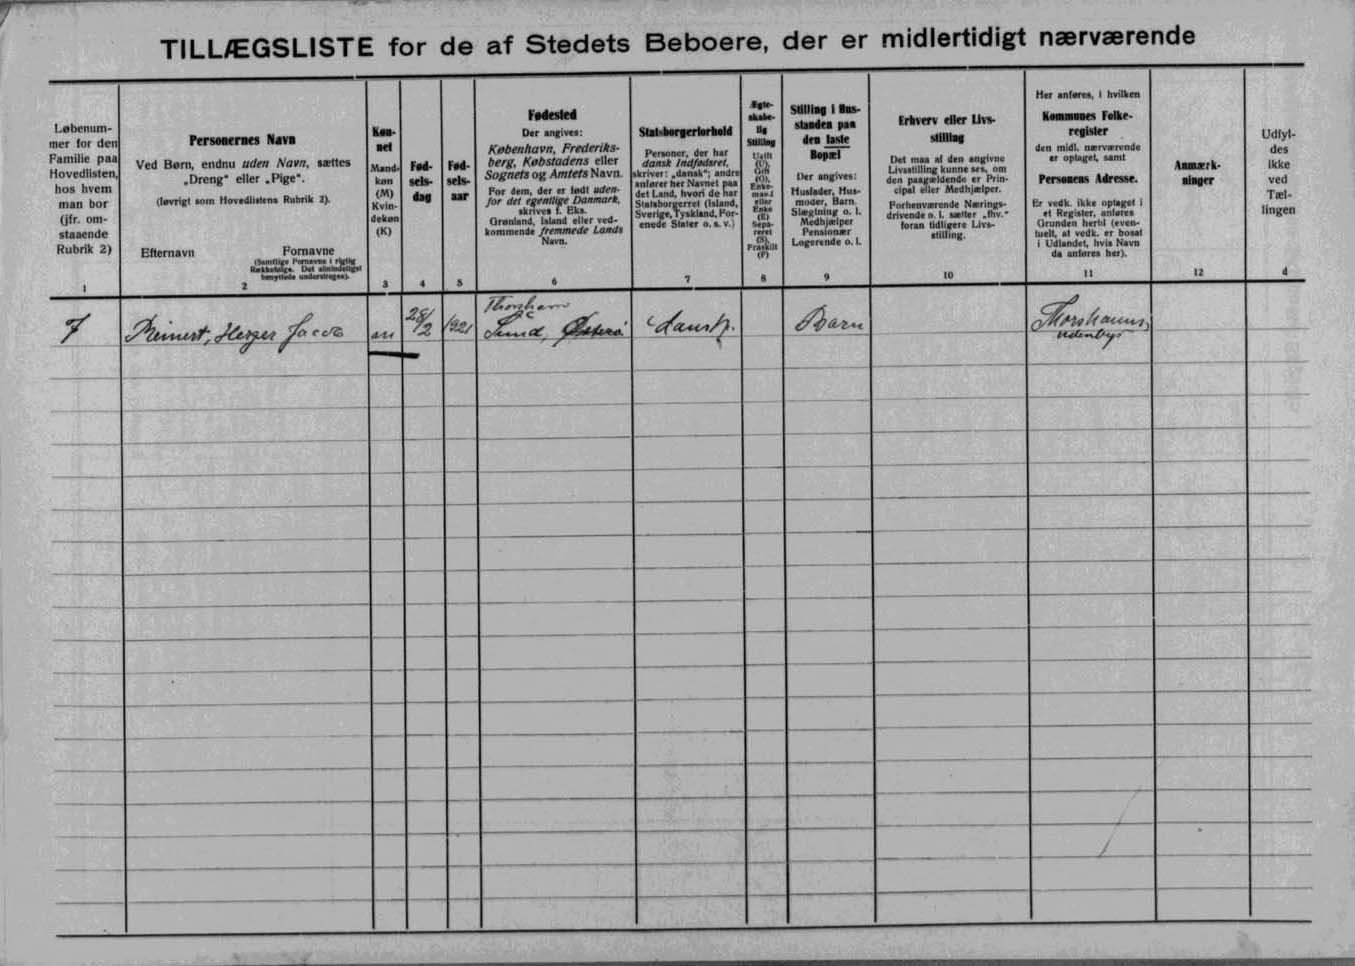 TILLÆGSLISTE for de af Stedets Beboere, der er midlertidigt nærværende
Løbenum-
mer for den
Familie paa
Hovedlisten,
hos hvem
man bor
(jfr. om-
staaende
Rubrik 2)
1
Personernes Navn
Ved Børn, endnu uden Navn, sættes
„Dreng“ eller „Pige“.
(Iøvrigt som Hovedlistens Rubrik 2).
Efternavn
Fornavne
(Samtlige Fornavne i rigtig
Rækkefølge. Det almindeligst
benyttede understreges).
2
Køn-
net
Mand-
køn
(M)
Kvin-
dekøn
(K)
3
Fød-
sels-
dag
4
Fød-
sels-
aar
5
Fødested
Der angives:
København, Frederiks-
berg, Købstadens eller
Sognets og Amtets Navn.
For dem, der er født uden-
for det egentlige Danmark,
skrives f. Eks.
Grønland, Island eller ved-
kommende fremmede Lands
Navn.
6
Statsborgerforhold
Personer, der har
dansk Indfødsret,
skriver: „dansk“; andre
anfører her Navnet paa
det Land, hvori de har
Statsborgerret (Island,
Sverige, Tyskland, For-
enede Stater o. s. v.)
7
Ægte-
skabe-
lig
Stilling
Ugift
(U),
Gift
(G),
Enke-
mand
eller
Enke
(E)
Sepa-
reret
(S),
Fraskilt
(F)
8
Stilling i Hus-
standen paa
den faste
Bopæl
Der angives:
Husfader, Hus-
moder, Barn,
Slægtning o. l.
Medhjælper
Pensionær
Logerende o. l.
9
Erhverv eller Livs-
stilling
Det maa af den angivne
Livsstilling kunne ses, om
den paagældende er Prin-
cipal eller Medhjælper.
Forhenværende Nærings-
drivende o. l. sætter „fhv.“
foran tidligere Livs-
stilling.
10
Her anføres, i hvilken
Kommunes Folke-
register
den midl. nærværende
er optaget, samt
Personens Adresse.
Er vedk. ikke optaget i
et Register, anføres
Grunden hertil (even-
tuelt, at vedk. er bosat
i Udlandet, hvis Navn
da anføres her).
11
Anmærk-
ninger
12
Udfyl-
des
ikke
ved
Tæl-
lingen
d
7 Reinert, Herger Jacob m 28/2 1921 Sund, Østerø dansk. Barn Thorshavns
Thorshavn
udenbys